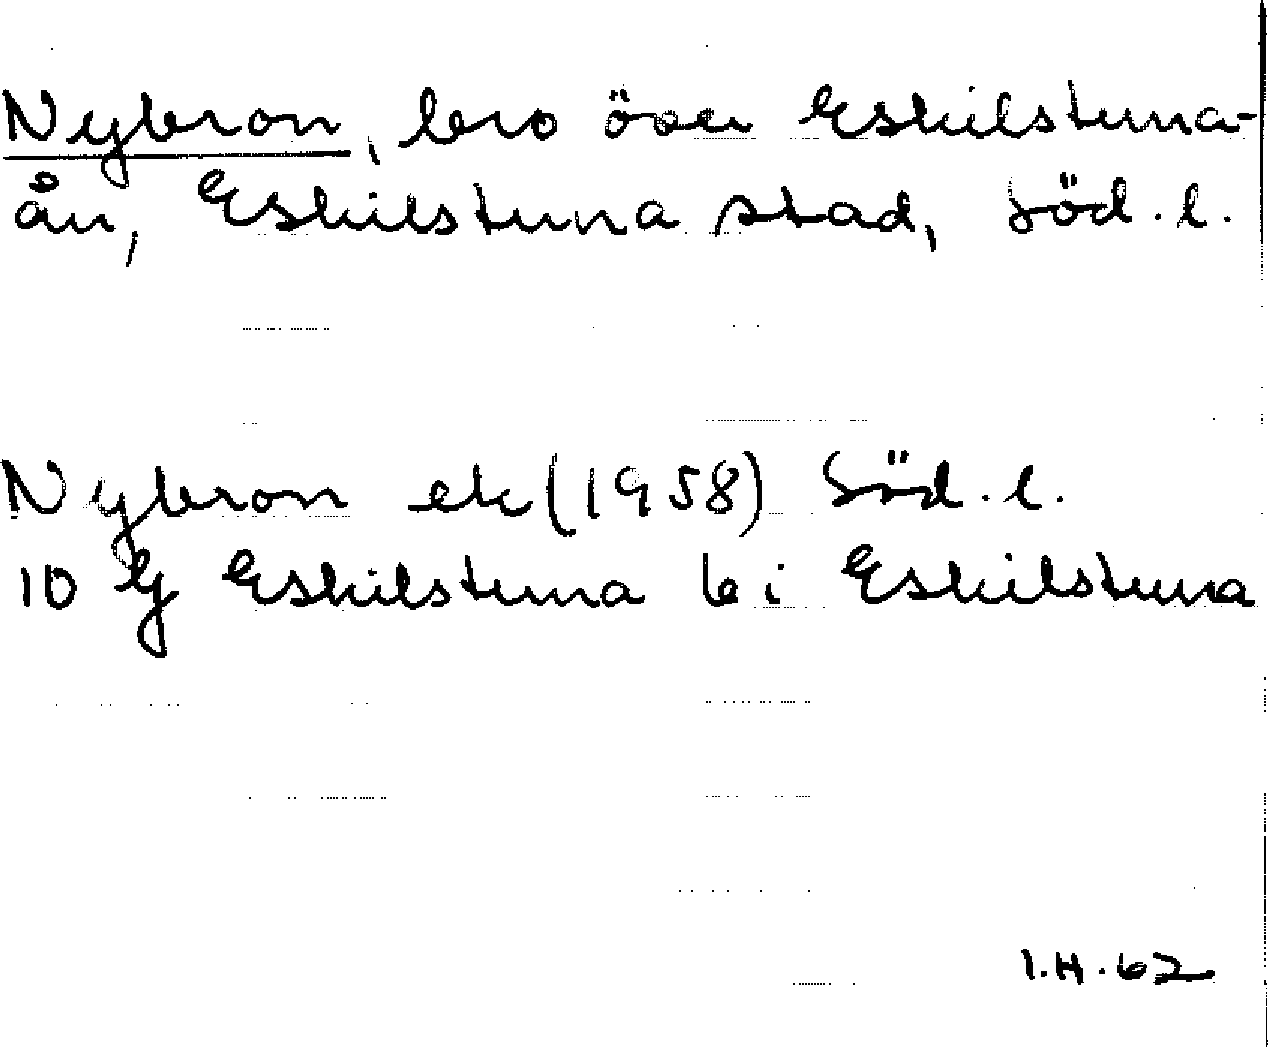 Nybron, bro över Eskilstuna-
ån, Eskilstuna stad, Söd. l.
Nybron ek (1958) Söd. l.
10 G Eskilstuna 6 i Eskilstuna
I.H. 62